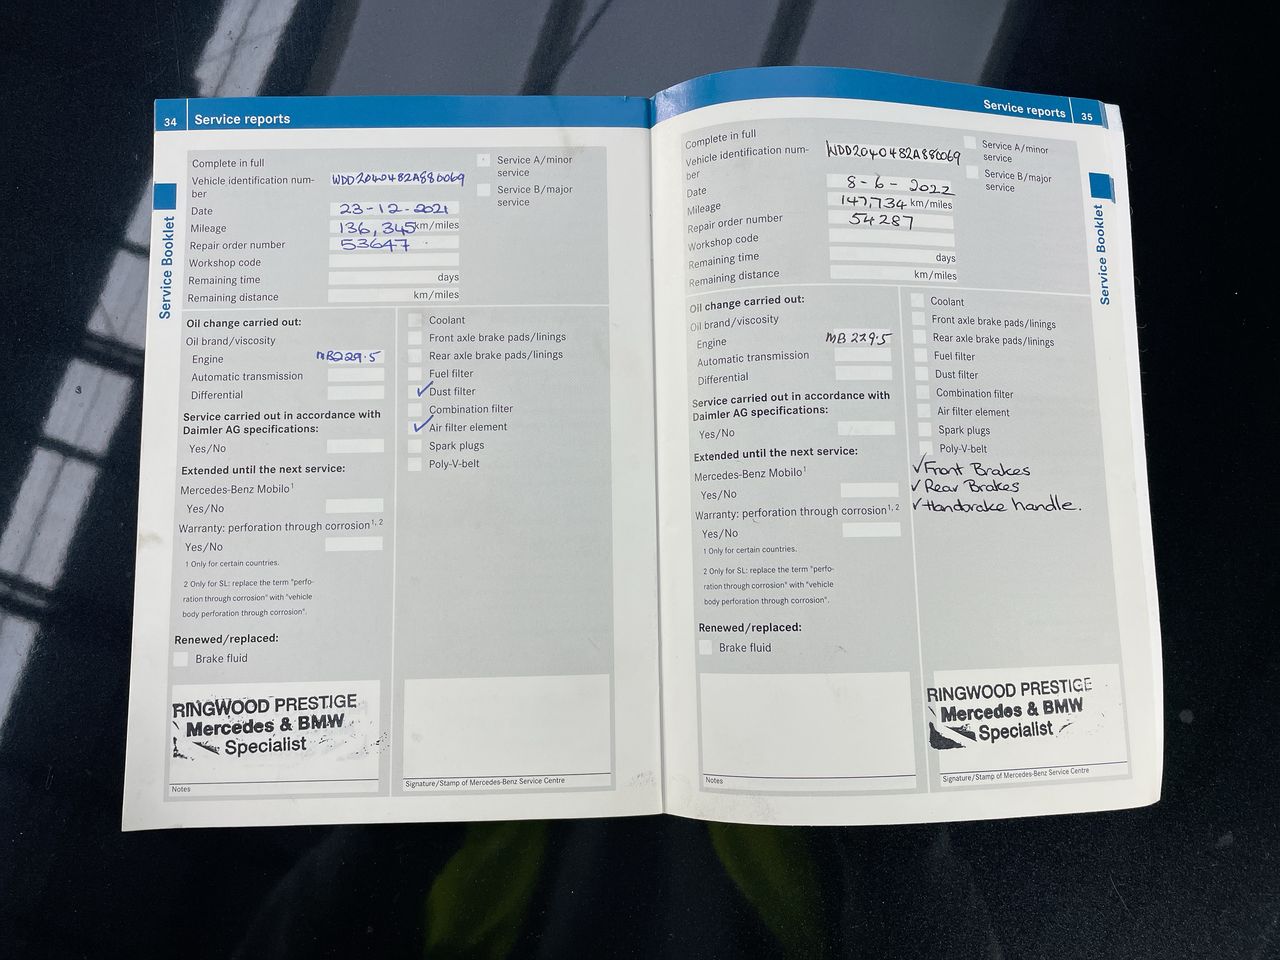 34 Service reports
Complete in full
Vehicle identification num-
ber
WDD2040482A880069
Date 23-12-2021
Mileage 136,345 km/miles
Repair order number 53647
Workshop code
Remaining time days
Remaining distance km/miles
Service A/minor
service
Service B/major
service
Service Booklet
Oil change carried out:
Oil brand/viscosity
Engine MB229.5
Automatic transmission
Differential
Service carried out in accordance with
Daimler AG specifications:
Yes/No
Extended until the next service:
Mercedes-Benz Mobilo1
Yes/No
Warranty: perforation through corrosion1, 2
Yes/No
1 Only for certain countries.
2 Only for SL: replace the term "perfo-
ration through corrosion" with "vehicle
body perforation through corrosion".
Renewed/replaced:
Brake fluid
Coolant
Front axle brake pads/linings
Rear axle brake pads/linings
Fuel filter
✓ Dust filter
Combination filter
✓ Air filter element
Spark plugs
Poly-V-belt
RINGWOOD PRESTIGE
Mercedes & BMW
Specialist
Notes
Signature/Stamp of Mercedes-Benz Service Centre
Service reports 35
Complete in full
Vehicle identification num-
ber
WDD2040482A880069
Date 8-6-2022
Mileage 147,734 km/miles
Repair order number 54287
Workshop code
Remaining time days
Remaining distance km/miles
Service A/minor
service
Service B/major
service
Service Booklet
Oil change carried out:
Oil brand/viscosity
Engine MB229.5
Automatic transmission
Differential
Service carried out in accordance with
Daimler AG specifications:
Yes/No
Extended until the next service:
Mercedes-Benz Mobilo1
Yes/No
Warranty: perforation through corrosion1, 2
Yes/No
1 Only for certain countries.
2 Only for SL: replace the term "perfo-
ration through corrosion" with "vehicle
body perforation through corrosion".
Renewed/replaced:
Brake fluid
Coolant
Front axle brake pads/linings
Rear axle brake pads/linings
Fuel filter
Dust filter
Combination filter
Air filter element
Spark plugs
Poly-V-belt
✓ Front Brakes
✓ Rear Brakes
✓ Handbrake handle.
Notes
RINGWOOD PRESTIGE
Mercedes & BMW
Specialist
Signature/Stamp of Mercedes-Benz Service Centre